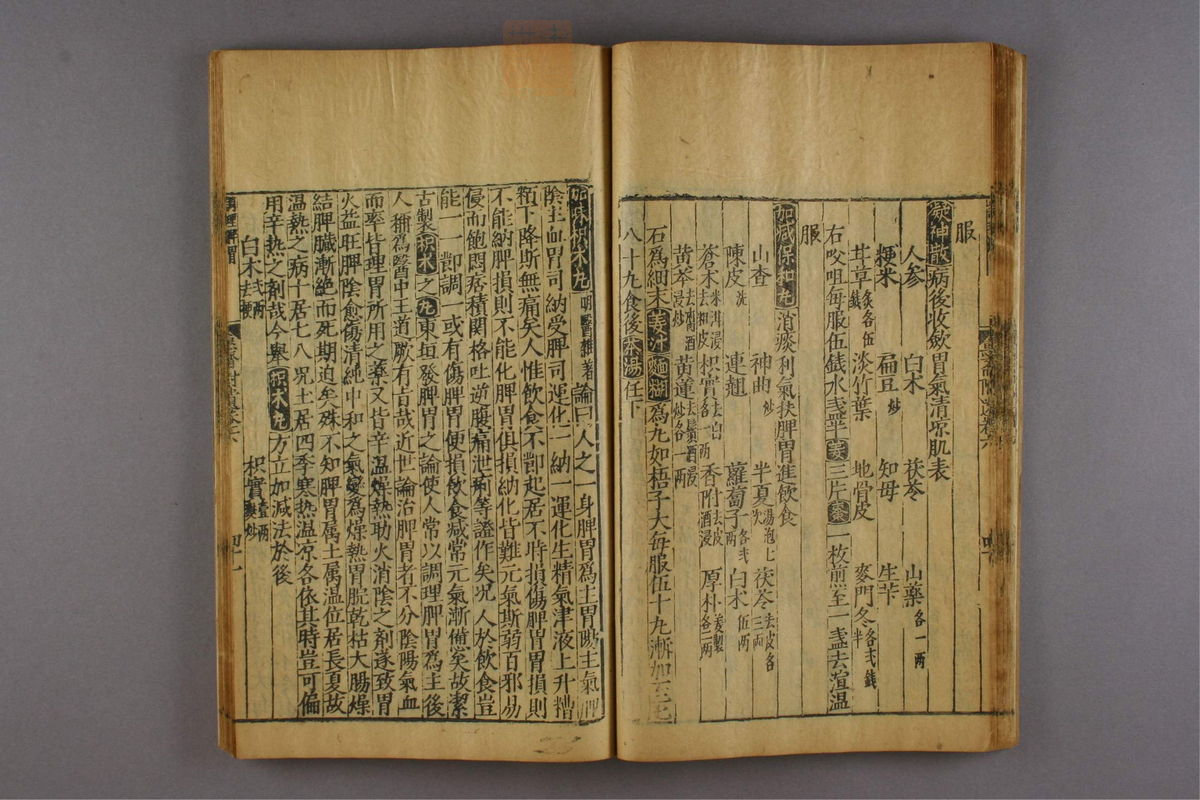 服
凝神散病後收歛胃氣清凉肌表
人參 白术 茯苓 山藥各一兩
粳米 扁豆炒 知母 生芐
甘草炙各伍錢 淡竹葉 地骨皮 麥門冬各弍錢半
右㕮咀每服伍錢水盞半姜三片棗一枚煎至一盞去渣溫
服
加減保和丸消痰利氣扶脾胃進飲食
山查 神曲炒 半夏湯泡七次 茯苓去皮各三兩
陳皮洗 連翹 蘿蔔子各弍兩 白术伍兩
蒼术米泔浸去粗皮 枳實去白各一兩 香附去皮酒浸 厚朴姜製各二兩
黃芩去腐酒浸炒 黃蓮去鬚酒浸炒各一兩
右爲細末姜汁麵糊爲丸如梧子大每服伍十丸漸加至七
八十丸食後茶湯任下
加味枳术丸明醫雜著論曰人之一身脾胃爲主胃陽主氣脾
陰主血胃司納受脾司運化一納一運化生精氣津液上升糟
粕下降斯無病矣人惟飲食不節起居不時損傷脾胃胃損則
不能納脾損則不能化脾胃俱損納化皆難元氣斯弱百邪易
侵而飽悶痞積關格吐逆腹痛泄痢等證作矣况人於飲食豈
能一一節調一或有傷脾胃便損飲食减常元氣漸憊矣故潔
古製枳术之丸東垣發脾胃之論使人常以調理脾胃爲主後
人稱爲醫中王道厥有旨哉近世論治脾胃者不分陰陽氣血
而率皆理胃所用之藥又皆辛溫燥熱助火消陰之劑遂致胃
火益旺脾陰愈傷清純中和之氣變爲燥熱胃脘乾枯大腸燥
結脾臟漸絕而死期迫矣殊不知脾胃属土属溫位居長夏故
溫熱之病十居七八况土居四季寒热温凉各依其時豈可偏
用辛热之劑哉今舉枳术丸方立加减法於後
白术弍兩去梗 枳實壹兩麩炒